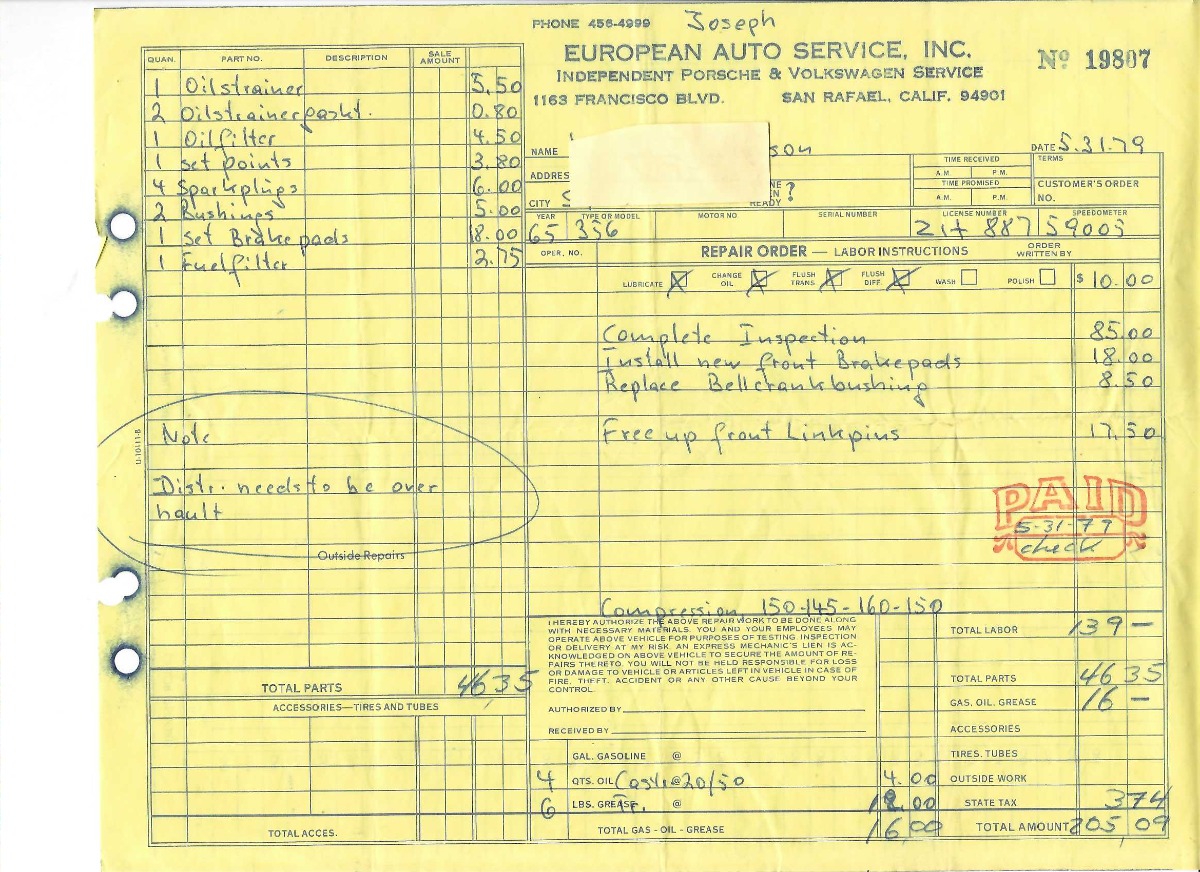 PHONE 456-4999 Joseph
EUROPEAN AUTO SERVICE, INC.
INDEPENDENT PORSCHE & VOLKSWAGEN SERVICE
1163 FRANCISCO BLVD. SAN RAFAEL, CALIF. 94901
No 19807
QUAN. PART NO. DESCRIPTION SALE AMOUNT
1 Oilstrainer 5.50
2 Oilstrainergaskt. 0.80
1 Oilfilter 4.50
1 set points 3.80
4 Sparkplugs 6.00
2 Bushings 5.00
1 set Brakepads 18.00
1 Fuelfilter 2.75
Note
Distr. needs to be over
hault
U-10411-8
Outside Repairs
TOTAL PARTS 46 35
ACCESSORIES—TIRES AND TUBES
TOTAL ACCES.
NAME son DATE 5.31.79
ADDRES
CITY S READY ?
TIME RECEIVED
A.M. P.M.
TIME PROMISED
A.M. P.M.
TERMS
CUSTOMER'S ORDER NO.
YEAR TYPE OR MODEL MOTOR NO. SERIAL NUMBER LICENSE NUMBER SPEEDOMETER
65 356 887 59005
OPER. NO. REPAIR ORDER — LABOR INSTRUCTIONS ORDER WRITTEN BY
LUBRICATE CHANGE OIL FLUSH TRANS. FLUSH DIFF. WASH POLISH $ 10.00
Complete Inspection 85.00
Install new front Brakepads 18.00
Replace Bellcrankbushing 8.50
Free up front Linkpins 17.50
PAID
5-31-79
check
Compression 150-145-160-150
I HEREBY AUTHORIZE THE ABOVE REPAIR WORK TO BE DONE ALONG
WITH NECESSARY MATERIALS. YOU AND YOUR EMPLOYEES MAY
OPERATE ABOVE VEHICLE FOR PURPOSES OF TESTING INSPECTION
OR DELIVERY AT MY RISK. AN EXPRESS MECHANIC'S LIEN IS AC-
KNOWLEDGED ON ABOVE VEHICLE TO SECURE THE AMOUNT OF RE-
PAIRS THERETO. YOU WILL NOT BE HELD RESPONSIBLE FOR LOSS
OR DAMAGE TO VEHICLE OR ARTICLES LEFT IN VEHICLE IN CASE OF
FIRE, THEFT, ACCIDENT OR ANY OTHER CAUSE BEYOND YOUR
CONTROL.
AUTHORIZED BY
RECEIVED BY
GAL. GASOLINE @
4 QTS. OIL Castr. @ 20/50 4.00
6 LBS. GREASE Tr. @ 12.00
TOTAL GAS - OIL - GREASE 16.00
TOTAL LABOR 139 —
TOTAL PARTS 46 35
GAS, OIL, GREASE 16 —
ACCESSORIES
TIRES, TUBES
OUTSIDE WORK
STATE TAX 3 74
TOTAL AMOUNT 205,09